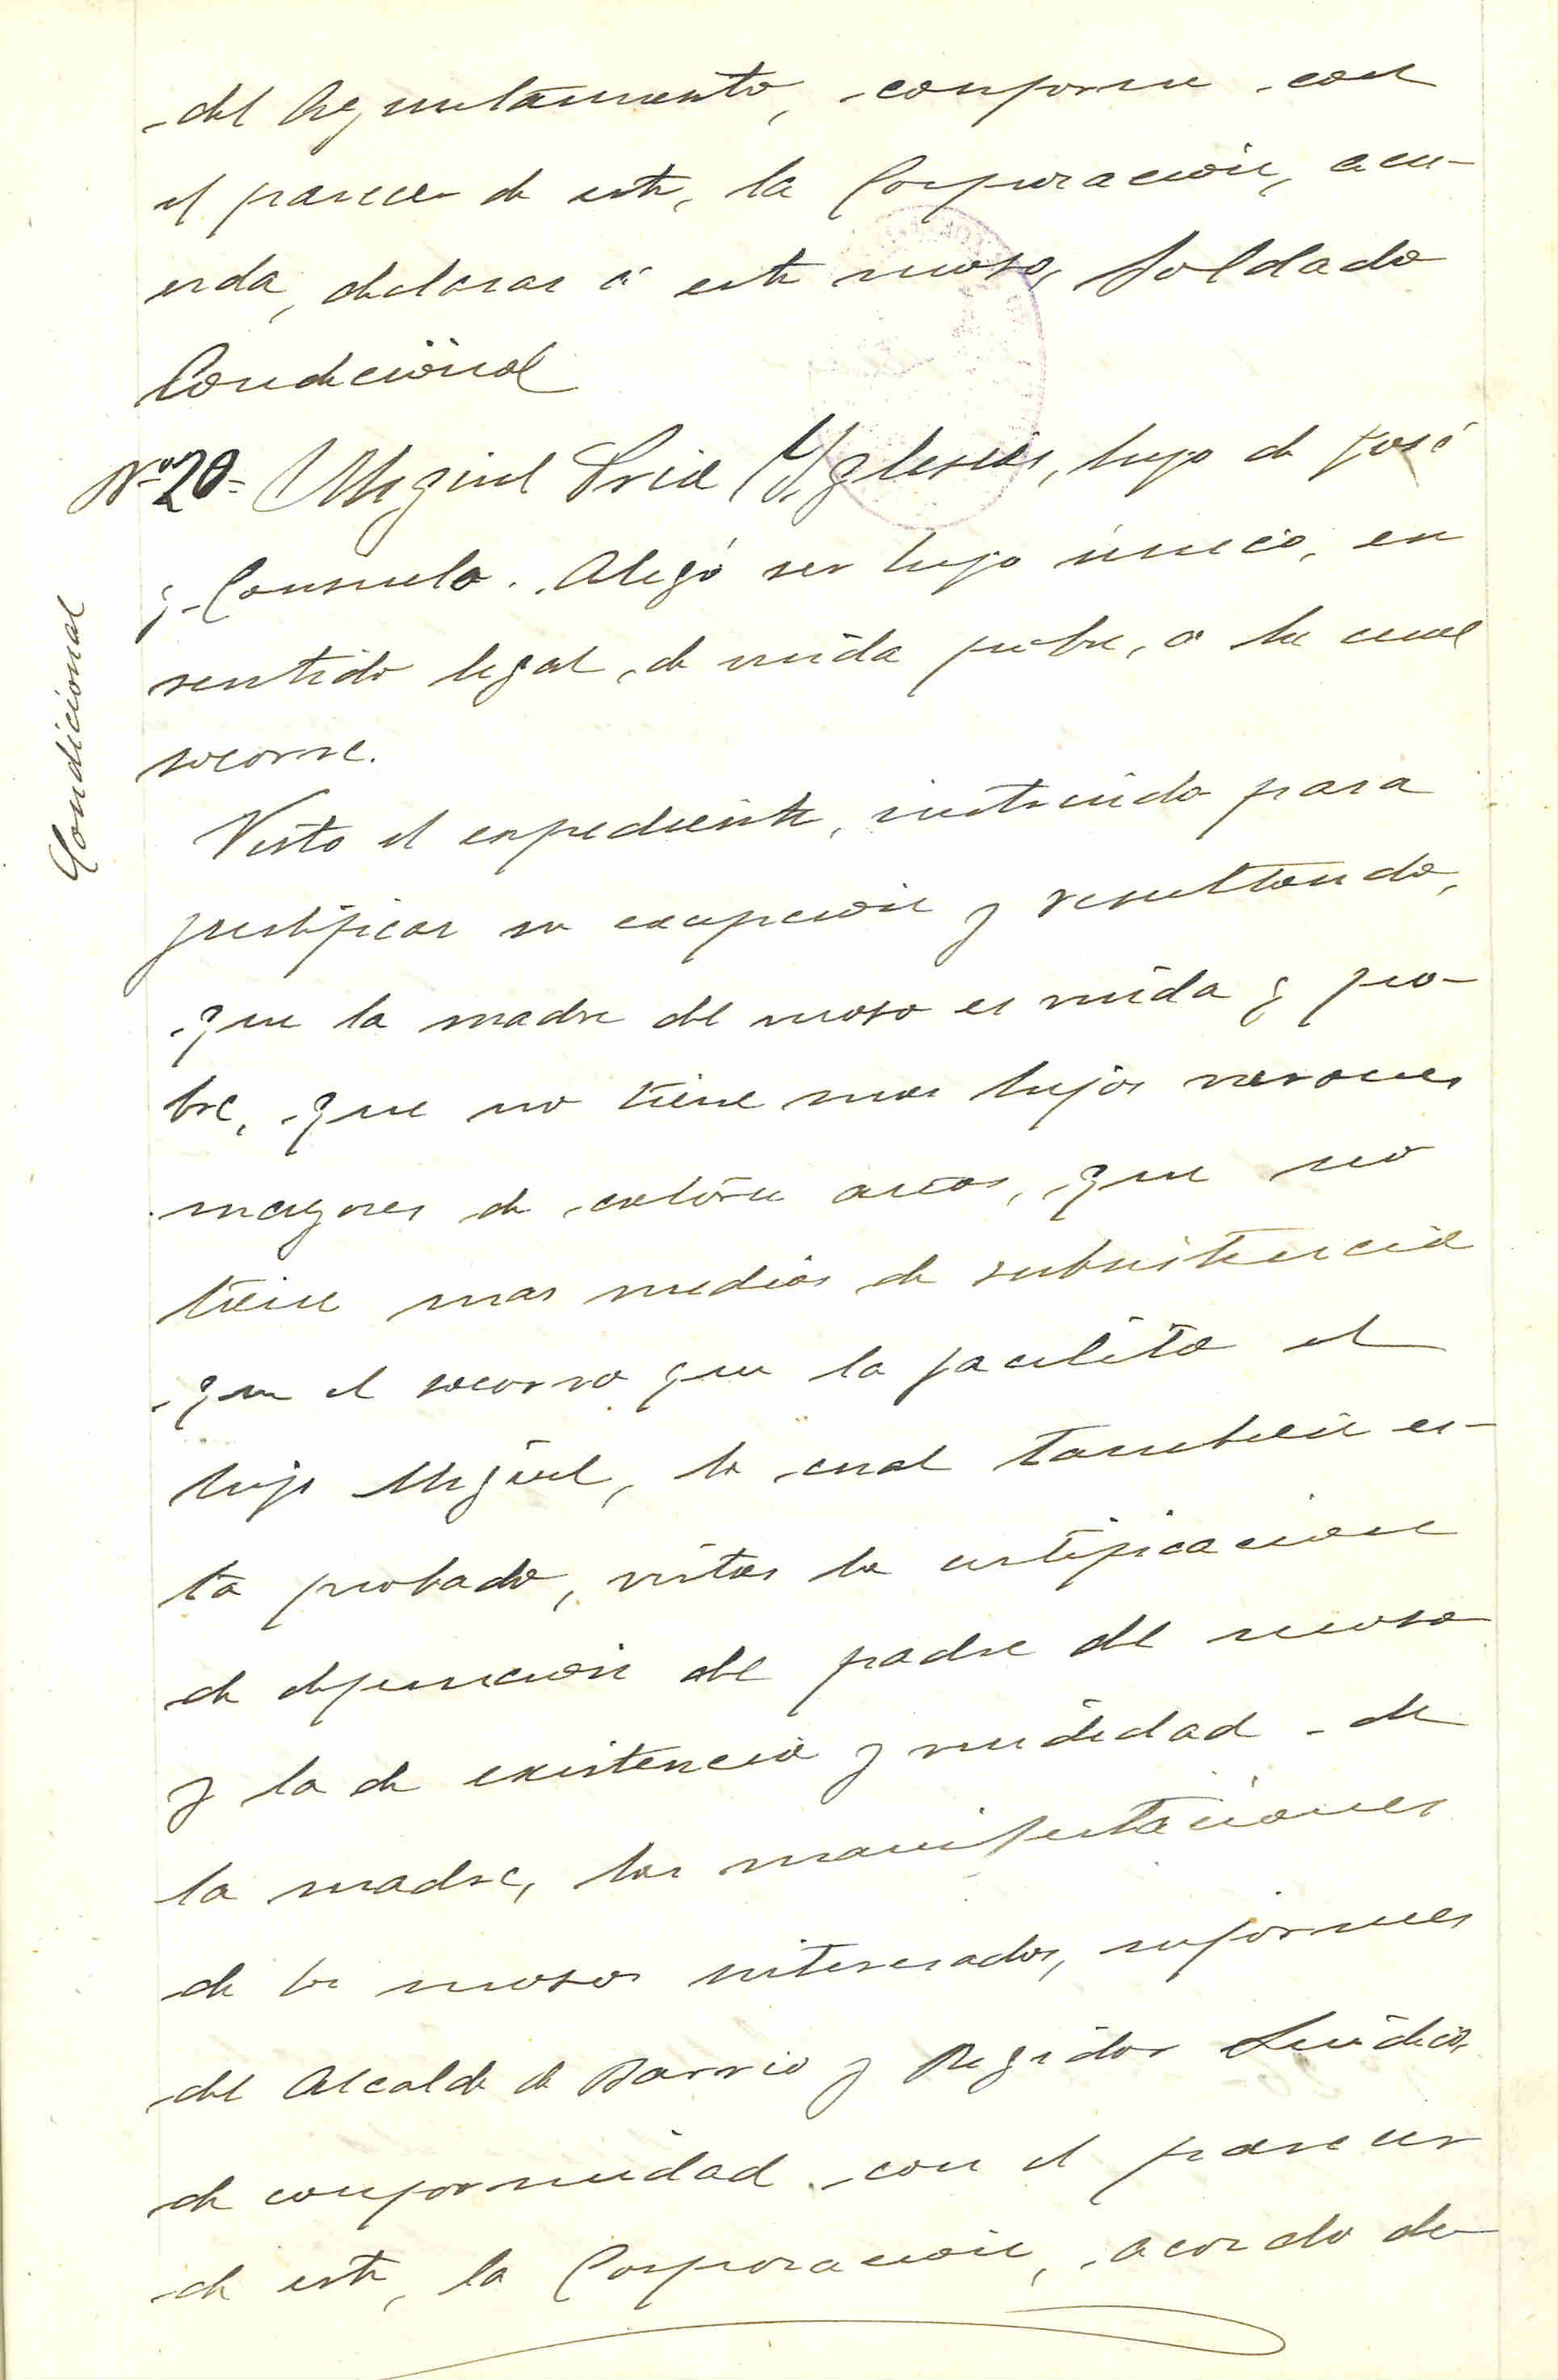 del Ayuntamiento, conforme con
el parecer de este, la Corporacion, acu-
erda, declarar á este moso, Soldado
Condicional
Nº 20= Miguel Sria Yglesias, hijo de José
y Consuelo. Alegó ser hijo único, en
sentido legal, de viuda pobre, a la cual
socorre.
Condicional
Visto el expediente, instruido para
justificar su excepcion y resultando,
que la madre del moso es viuda y po-
bre, que no tiene mas hijos varones
mayores de catorce años, que no
tiene mas medios de subsistencia
que el socorro que la facilita el
hijo Miguel, lo cual tambien es-
ta probado, vistas la certificacion
de defuncion del padre del moso
y la de existencia y viudedad de
la madre, las manifestaciones
de los mosos interesados, informes
del Alcalde de Barrio y Regidor Sindico,
de conformidad con el parecer
de este, la Corporacion, acordo de-